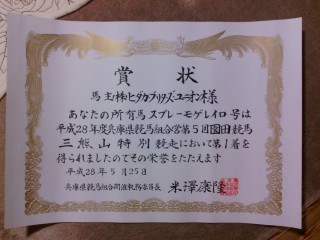 賞状
馬主(株)ヒダカブリーダーズユニオン様
あなたの所有馬スプレーモゲレイロ号は
平成28年度兵庫県競馬組合営第5回園田競馬
三熊山特別競走において第1着を
得られましたのでその栄誉をたたえます
平成28年5月25日
兵庫県競馬組合開催執務委員長 米澤康隆